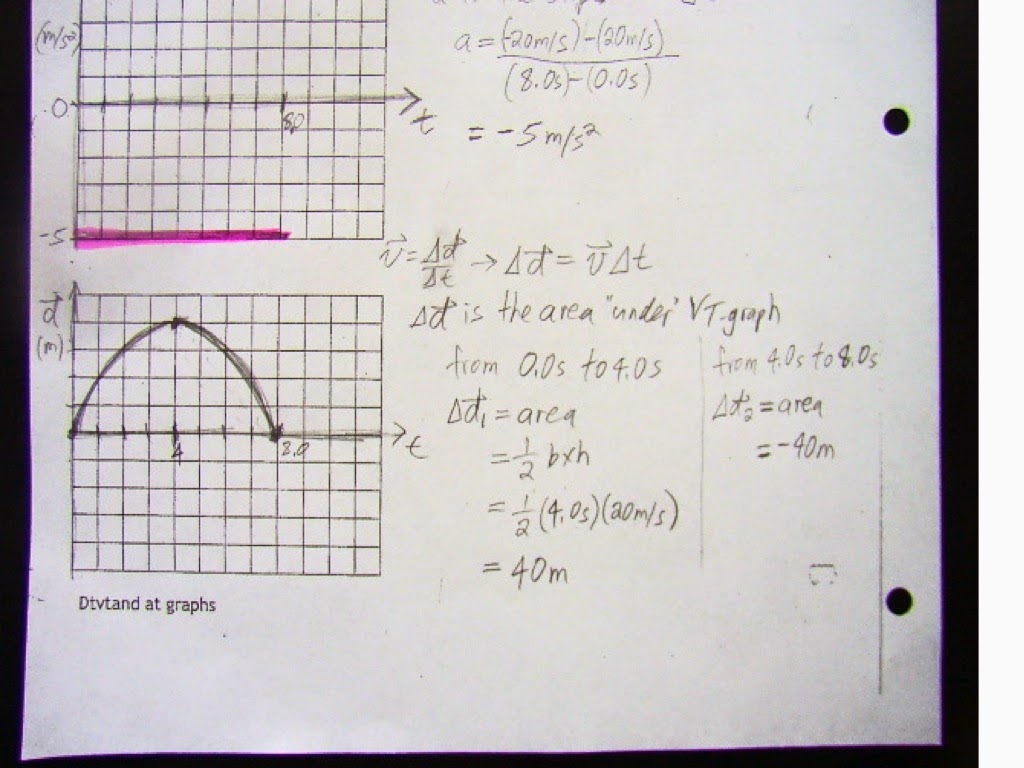 (m/s²)
0
8.0
t
-5
a = (-20m/s) - (20m/s)
(8.0s) - (0.0s)
= -5 m/s²
v⃗ = Δd⃗/Δt → Δd⃗ = v⃗Δt
Δd⃗ is the area "under" VT-graph
d⃗
(m)
4
8.0
t
from 0.0s to 4.0s
Δd⃗₁ = area
= 1/2 b×h
= 1/2 (4.0s)(20m/s)
= 40m
from 4.0s to 8.0s
Δd⃗₂ = area
= -40m
Dtvtand at graphs